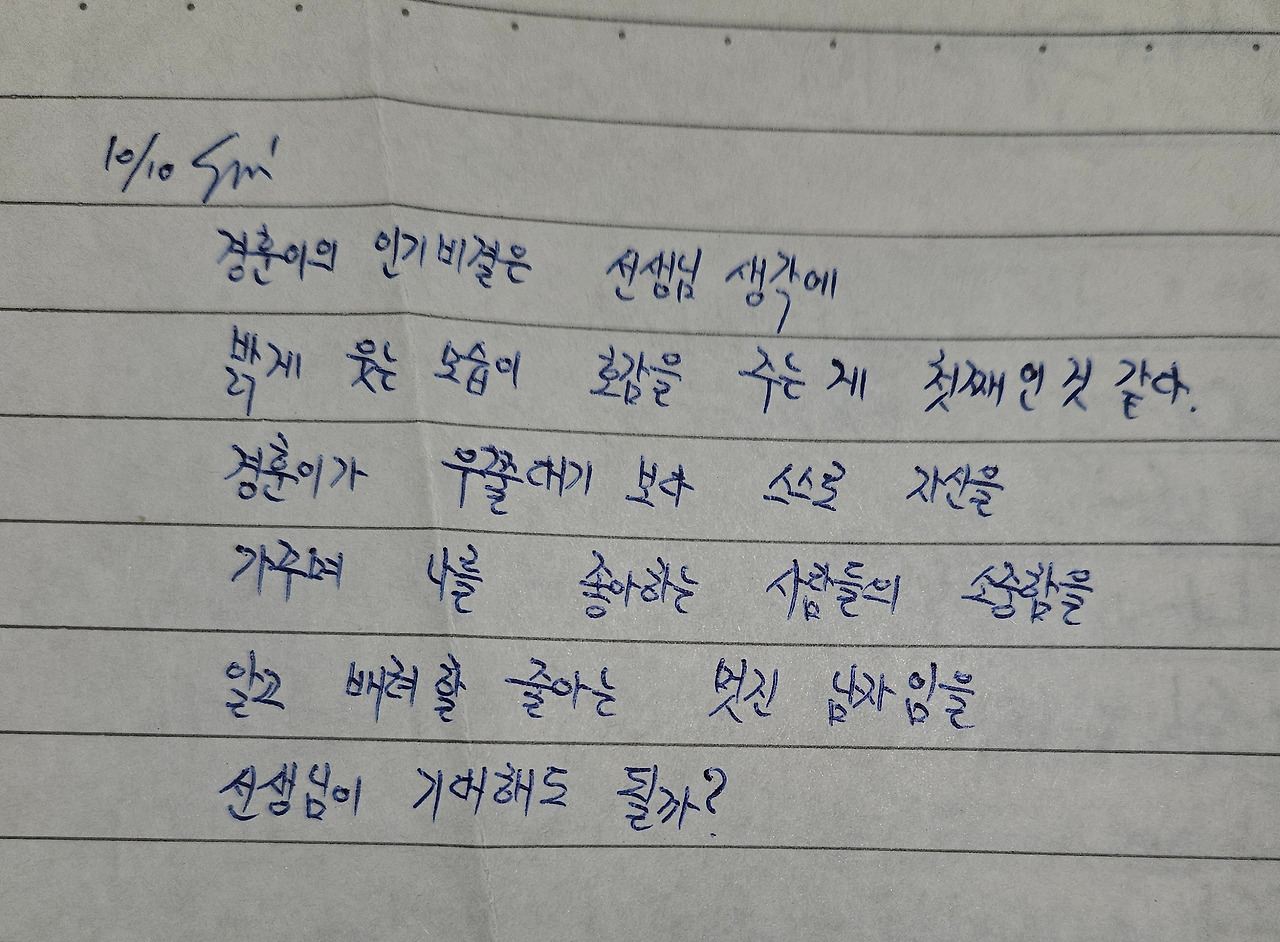 10/10
경훈이의 인기비결은 선생님 생각에
밝게 웃는 모습이 호감을 주는 게 첫째인것 같다.
경훈이가 우쭐대기 보다 스스로 자신을
가꾸며 나를 좋아하는 사람들의 소중함을
알고 배려할 줄아는 멋진 남자임을
선생님이 기대해도 될까?